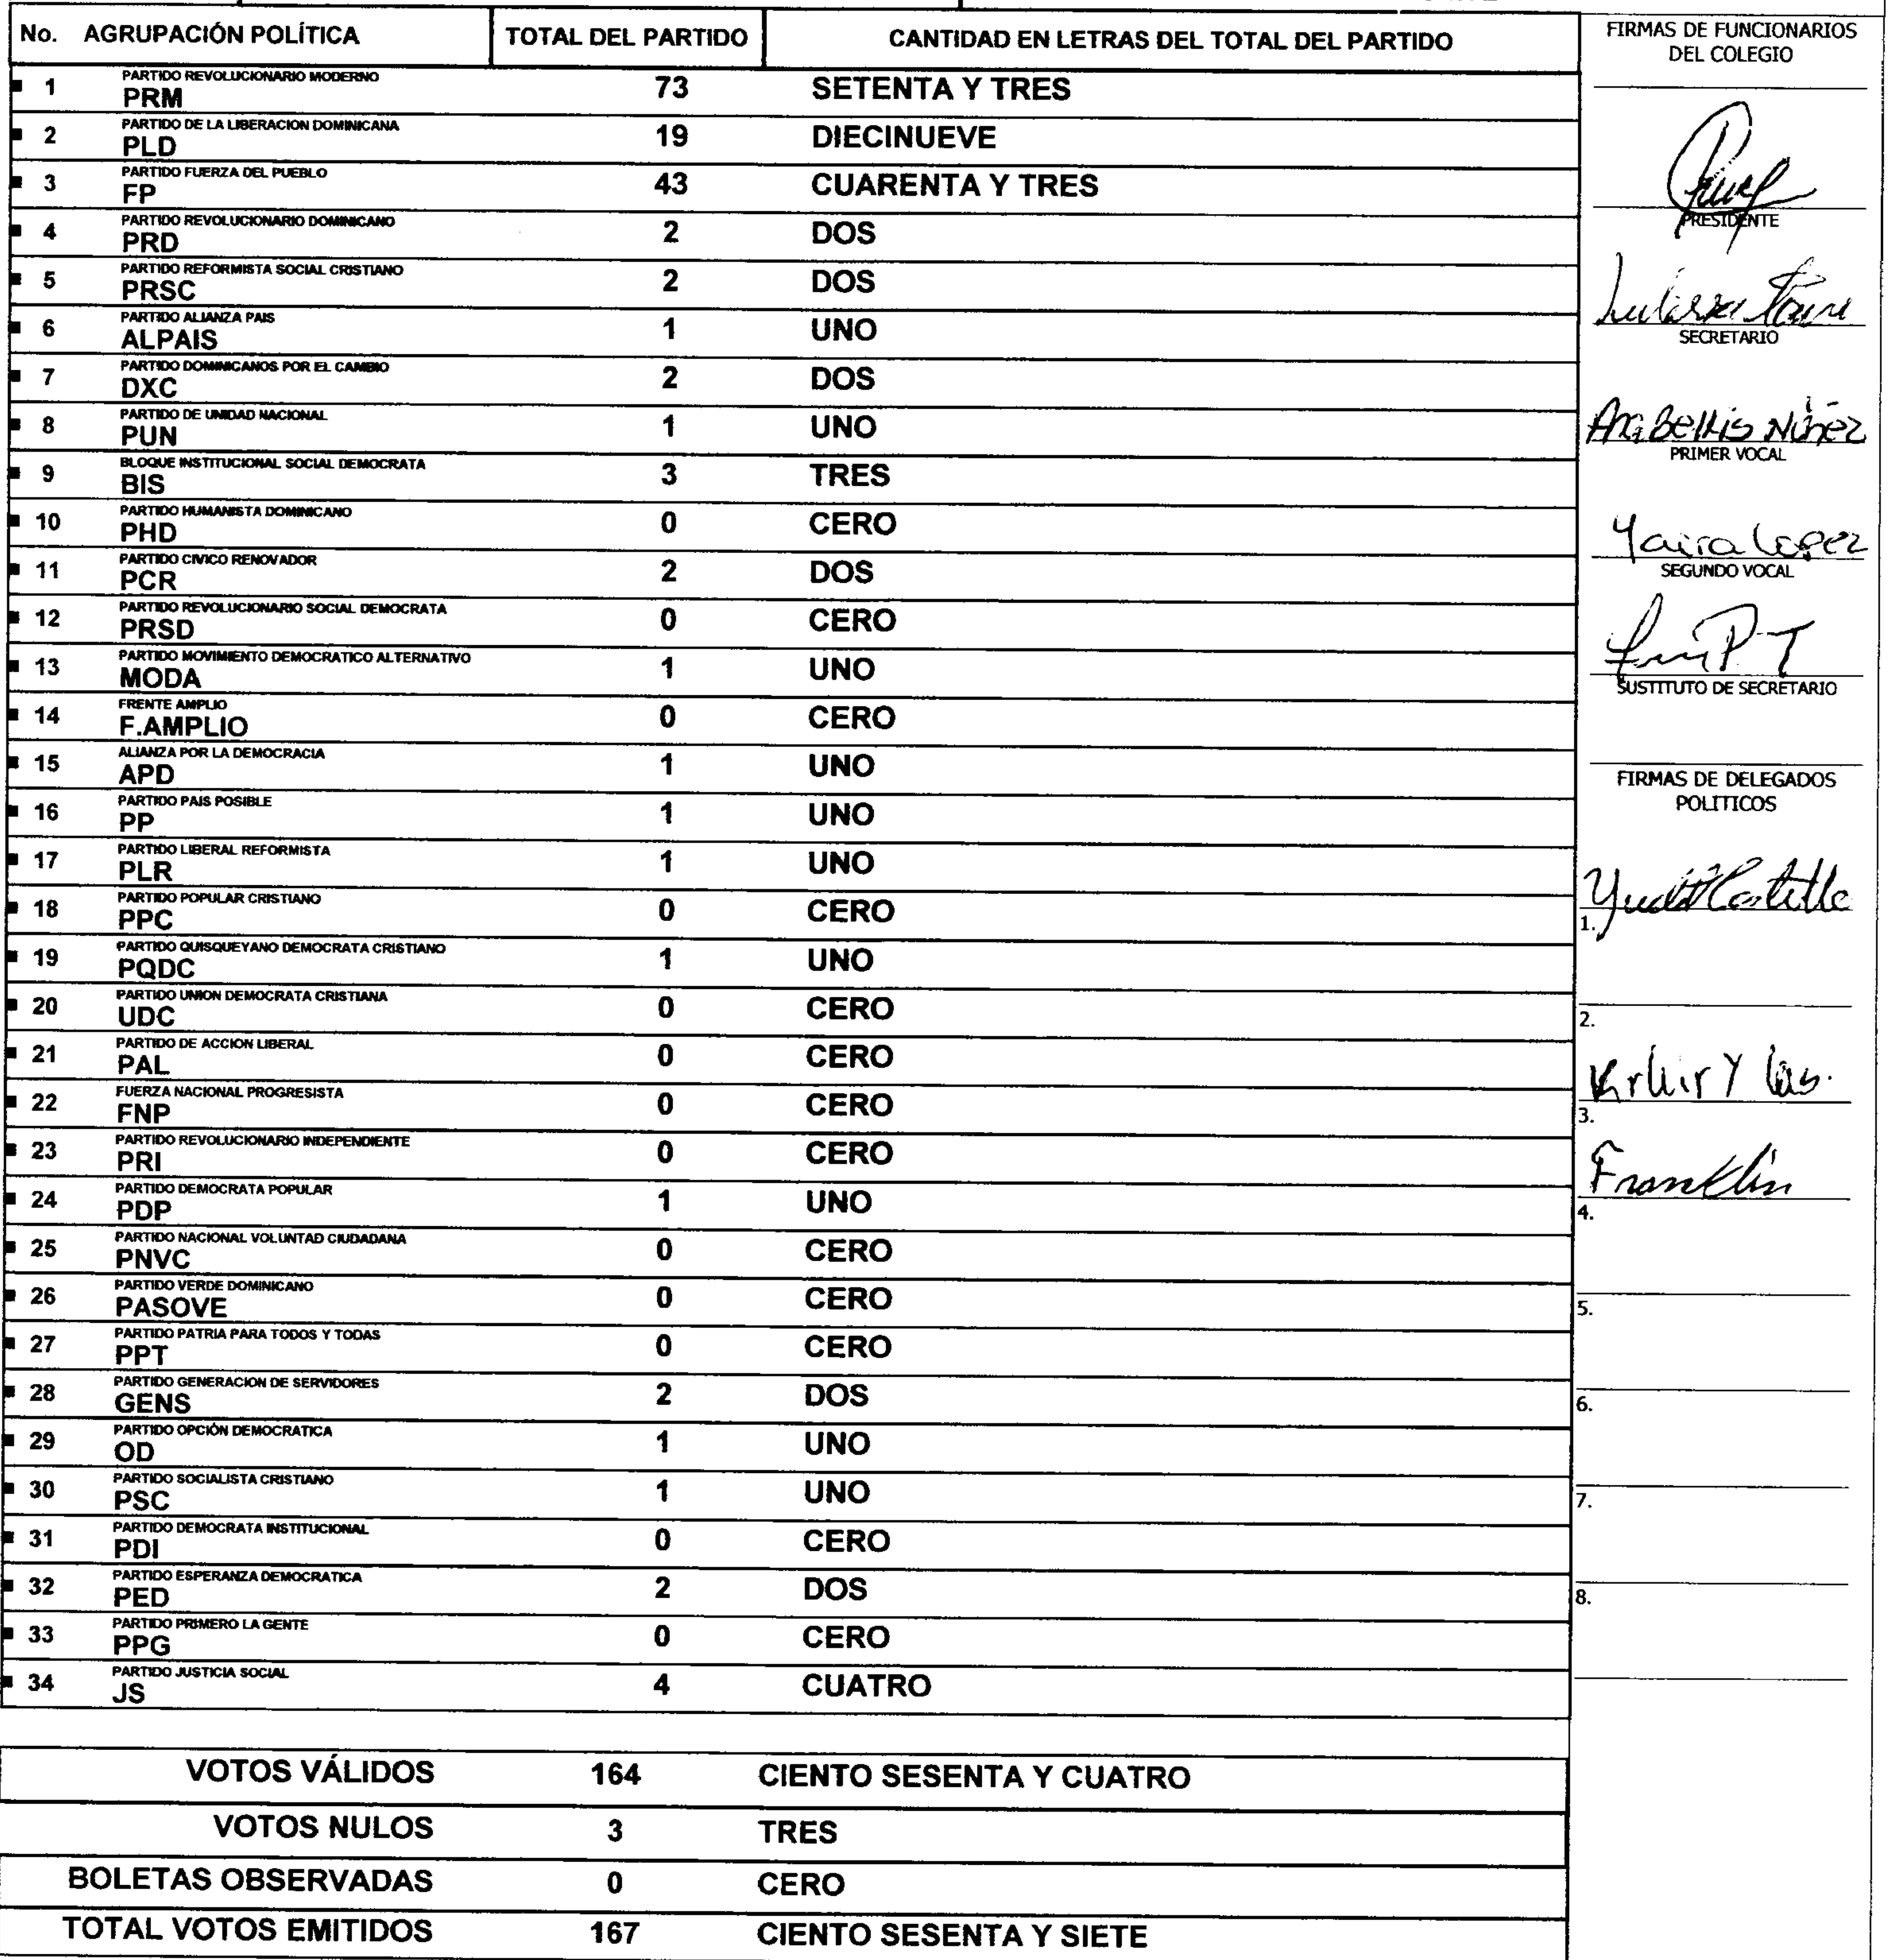 No. AGRUPACIÓN POLÍTICA TOTAL DEL PARTIDO CANTIDAD EN LETRAS DEL TOTAL DEL PARTIDO
PARTIDO REVOLUCIONARIO MODERNO
1 PRM 73 SETENTA Y TRES
PARTIDO DE LA LIBERACION DOMINICANA
2 PLD 19 DIECINUEVE
PARTIDO FUERZA DEL PUEBLO
3 FP 43 CUARENTA Y TRES
PARTIDO REVOLUCIONARIO DOMINICANO
4 PRD 2 DOS
PARTIDO REFORMISTA SOCIAL CRISTIANO
5 PRSC 2 DOS
PARTIDO ALIANZA PAIS
6 ALPAIS 1 UNO
PARTIDO DOMINICANOS POR EL CAMBIO
7 DXC 2 DOS
PARTIDO DE UNIDAD NACIONAL
8 PUN 1 UNO
BLOQUE INSTITUCIONAL SOCIAL DEMOCRATA
9 BIS 3 TRES
PARTIDO HUMANISTA DOMINICANO
10 PHD 0 CERO
PARTIDO CIVICO RENOVADOR
11 PCR 2 DOS
PARTIDO REVOLUCIONARIO SOCIAL DEMOCRATA
12 PRSD 0 CERO
PARTIDO MOVIMIENTO DEMOCRATICO ALTERNATIVO
13 MODA 1 UNO
FRENTE AMPLIO
14 F.AMPLIO 0 CERO
ALIANZA POR LA DEMOCRACIA
15 APD 1 UNO
PARTIDO PAIS POSIBLE
16 PP 1 UNO
PARTIDO LIBERAL REFORMISTA
17 PLR 1 UNO
PARTIDO POPULAR CRISTIANO
18 PPC 0 CERO
PARTIDO QUISQUEYANO DEMOCRATA CRISTIANO
19 PQDC 1 UNO
PARTIDO UNION DEMOCRATA CRISTIANA
20 UDC 0 CERO
PARTIDO DE ACCION LIBERAL
21 PAL 0 CERO
FUERZA NACIONAL PROGRESISTA
22 FNP 0 CERO
PARTIDO REVOLUCIONARIO INDEPENDIENTE
23 PRI 0 CERO
PARTIDO DEMOCRATA POPULAR
24 PDP 1 UNO
PARTIDO NACIONAL VOLUNTAD CIUDADANA
25 PNVC 0 CERO
PARTIDO VERDE DOMINICANO
26 PASOVE 0 CERO
PARTIDO PATRIA PARA TODOS Y TODAS
27 PPT 0 CERO
PARTIDO GENERACION DE SERVIDORES
28 GENS 2 DOS
PARTIDO OPCIÓN DEMOCRATICA
29 OD 1 UNO
PARTIDO SOCIALISTA CRISTIANO
30 PSC 1 UNO
PARTIDO DEMOCRATA INSTITUCIONAL
31 PDI 0 CERO
PARTIDO ESPERANZA DEMOCRATICA
32 PED 2 DOS
PARTIDO PRIMERO LA GENTE
33 PPG 0 CERO
PARTIDO JUSTICIA SOCIAL
34 JS 4 CUATRO
VOTOS VÁLIDOS 164 CIENTO SESENTA Y CUATRO
VOTOS NULOS 3 TRES
BOLETAS OBSERVADAS 0 CERO
TOTAL VOTOS EMITIDOS 167 CIENTO SESENTA Y SIETE
FIRMAS DE FUNCIONARIOS
DEL COLEGIO
PRESIDENTE
SECRETARIO
Núñez
PRIMER VOCAL
Yaira Lopez
SEGUNDO VOCAL
SUSTITUTO DE SECRETARIO
FIRMAS DE DELEGADOS
POLITICOS
1.
2.
3.
Franklin
4.
5.
6.
7.
8.